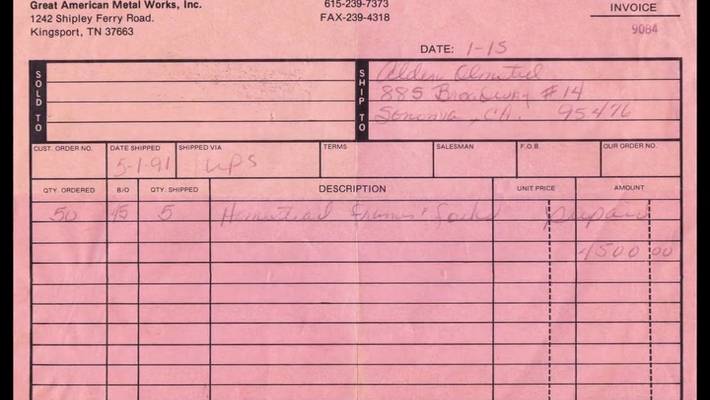 Great American Metal Works, Inc.
1242 Shipley Ferry Road.
Kingsport, TN 37663
615-239-7373
FAX-239-4318
INVOICE
9084
DATE: 1-15
SOLD TO
SHIP TO
Alden Olmsted
885 Broadway #14
Sonoma, CA. 95476
CUST. ORDER NO.
DATE SHIPPED
5-1-91
SHIPPED VIA
UPS
TERMS
SALESMAN
F.O.B.
OUR ORDER NO.
QTY. ORDERED B/O QTY. SHIPPED DESCRIPTION UNIT PRICE AMOUNT
50 45 5 Homestead prepaid
1500 00